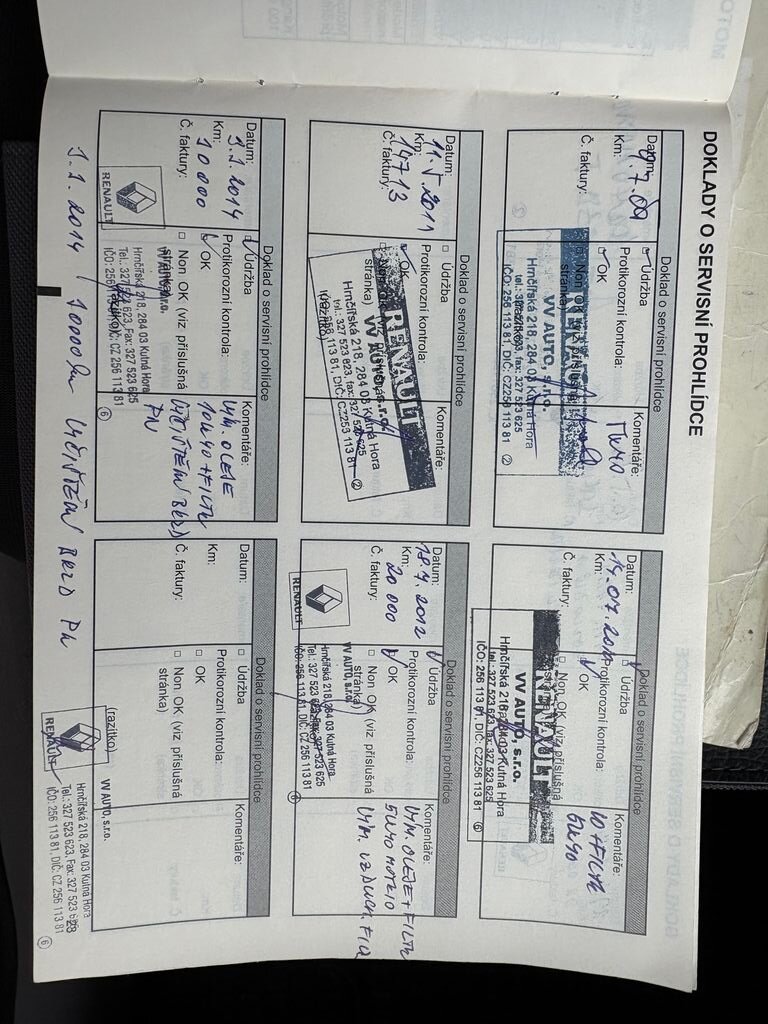 DOKLADY O SERVISNÍ PROHLÍDCE
Doklad o servisní prohlídce
Datum:
7.09
Km:
Č. faktury:
Údržba
Protikorozní kontrola:
OK
Non OK (viz příslušná
VV AUTO, s.r.o.
Hrnčířská 218, 284 03 Kutná Hora
tel.: 327 523 623, fax: 327 523 625
IČO: 256 113 81, DIČ: CZ256 113 81 ②
Komentáře:
Doklad o servisní prohlídce
Datum:
14.07.2010
Km:
Č. faktury:
Údržba
Protikorozní kontrola:
OK
Non OK (viz příslušná
RENAULT
VV AUTO, s.r.o.
Hrnčířská 218, 284 03 Kutná Hora
tel.: 327 523 623, fax: 327 523 625
IČO: 256 113 81, DIČ: CZ256 113 81 ⑥
Komentáře:
5W40
Doklad o servisní prohlídce
Datum:
11.5.2011
Km:
14713
Č. faktury:
Údržba
Protikorozní kontrola:
OK
stránka)
RENAULT
VV AUTO, s.r.o.
Hrnčířská 218, 284 03 Kutná Hora
tel.: 327 523 623, fax: 327 523 625
IČO: 256 113 81, DIČ: CZ256 113 81 ②
Komentáře:
Doklad o servisní prohlídce
Datum:
18.7.2012
Km:
20 000
Č. faktury:
Údržba
Protikorozní kontrola:
OK
Non OK (viz příslušná
stránka)
RENAULT
VV AUTO, s.r.o.
Hrnčířská 218, 284 03 Kutná Hora
Tel.: 327 523 623, Fax: 327 523 625
IČO: 256 113 81, DIČ: CZ 256 113 81 ⑥
Komentáře:
VÝM. OLEJE + FILTR
5W40
VÝM. VZDUCH. FIL
Doklad o servisní prohlídce
Datum:
1.1.2014
Km:
10000
Č. faktury:
Údržba
Protikorozní kontrola:
OK
Non OK (viz příslušná
stránka)
RENAULT
VV AUTO, s.r.o.
Hrnčířská 218, 284 03 Kutná Hora
Tel.: 327 523 623, Fax: 327 523 625
IČO: 256 113 81, DIČ: CZ 256 113 81 ⑥
Komentáře:
VÝM. OLEJE
10W40 + FILTR
VYČIŠTĚNÍ BRZD
PN
Doklad o servisní prohlídce
Datum:
Km:
Č. faktury:
Údržba
Protikorozní kontrola:
OK
Non OK (viz příslušná
stránka)
(razítko)
Komentáře:
1.1.2014 10000 km VYČIŠTĚNÍ BRZD PN
RENAULT
VV AUTO, s.r.o.
Hrnčířská 218, 284 03 Kutná Hora
Tel.: 327 523 623, Fax: 327 523 625
IČO: 256 113 81, DIČ: CZ 256 113 81 ⑥